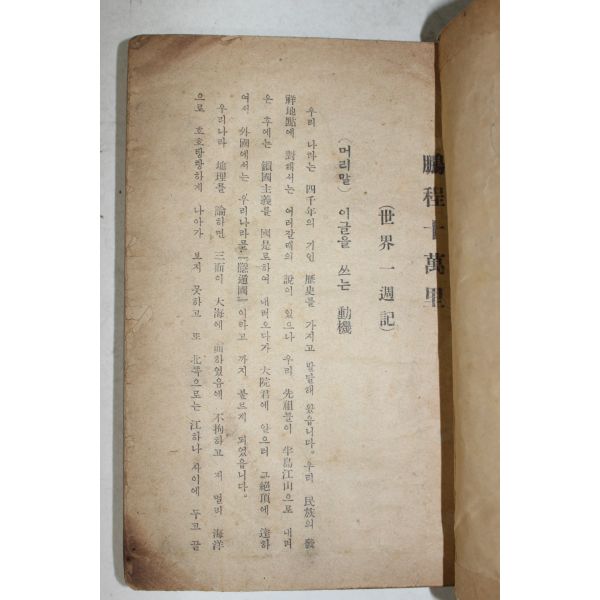 鵬程十萬里
(世界一週記)
(머리말) 이글을 쓰는 動機
우리 나라는 四千年의 기인 歷史를 가지고 발달해 왔읍니다. 우리 民族의 發
祥地點에 對해서는 여러갈래의 說이 있으나 우리 先祖들이 半島江山으로 내려
온 후에는 鎖國主義를 國是로하여 내려오다가 大院君에 일으러 그 絕頂에 達하
여서 外國에서는 우리나라를「隱遁國」이라고 까지 불르게 되였읍니다.
우리나라 地理를 論하면 三面이 大海에 面하였음에 不拘하고 저 멀리 海洋
으로 호호탕탕하게 나아가 보지 못하고 또 北쪽으로는 江하나 사이에 두고 끝